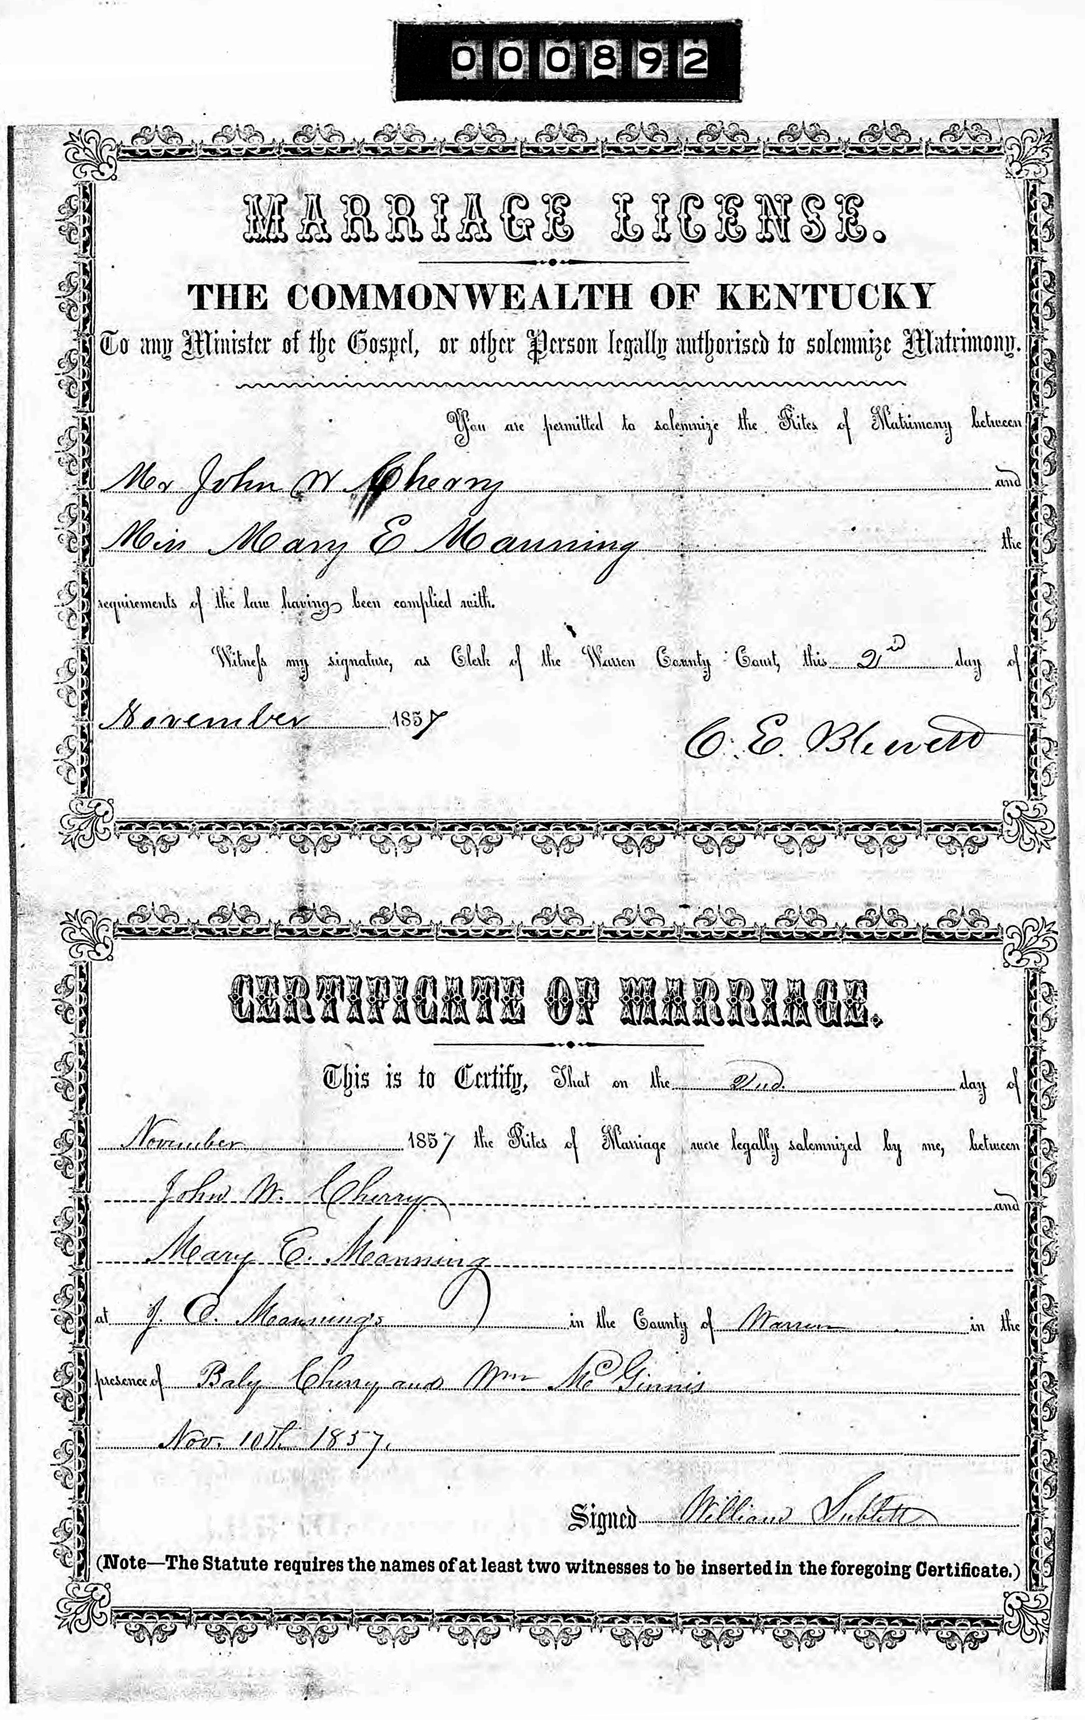 000892
MARRIAGE LICENSE.
THE COMMONWEALTH OF KENTUCKY
To any Minister of the Gospel, or other Person legally authorised to solemnize Matrimony.
You are permitted to solemnize the Rites of Matrimony between
Mr John W Cherry and
Miss Mary E Manning the
requirements of the law having been complied with.
Witness my signature, as Clerk of the Warren County Court, this 2nd day of
November 1857
C. E. Blewett
CERTIFICATE OF MARRIAGE.
This is to Certify, That on the 2nd. day of
November 1857 the Rites of Marriage were legally solemnized by me, between
John W. Cherry and
Mary E. Manning
at J. C. Manning's in the County of Warren in the
presence of Baly Cherry and Wm McGinnis
Nov. 10th 1857.
Signed William Sublett
(Note—The Statute requires the names of at least two witnesses to be inserted in the foregoing Certificate.)